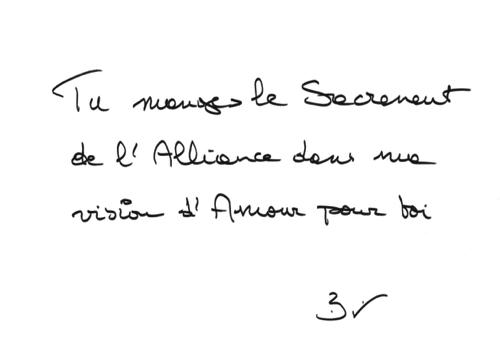 Tu manges le Sacrement
de l'Alliance dans ma
vision d'Amour pour toi
3✓